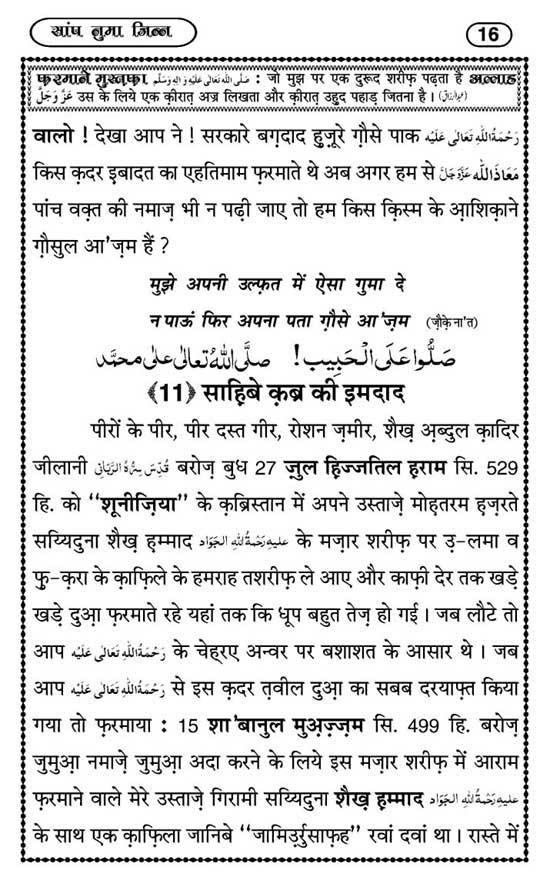 सांप नुमा जिन्न
16
फ़रमाने मुस्तफ़ा صَلَّى اللهُ تَعَالٰى عَلَيْهِ وَاٰلِهٖ وَسَلَّم : जो मुझ पर एक दुरूद शरीफ़ पढ़ता है अल्लाह
عَزَّ وَجَلَّ उस के लिये एक क़ीरात़ अज्र लिखता और क़ीरात़ उहुद पहाड़ जितना है।
वालो ! देखा आप ने ! सरकारे बग़दाद हुज़ूरे ग़ौसे पाक رَحْمَةُ اللهِ تَعَالٰى عَلَيْه
किस क़दर इबादत का एहतिमाम फ़रमाते थे अब अगर हम से مَعَاذَ الله عَزَّوَجَلَّ
पांच वक़्त की नमाज़ भी न पढ़ी जाए तो हम किस क़िस्म के आ़शिक़ाने
ग़ौसुल आ'ज़म हैं ?
मुझे अपनी उल्फ़त में ऐसा गुमा दे
न पाऊं फिर अपना पता ग़ौसे आ'ज़म (ज़ौक़े ना'त)
صَلُّوا عَلَى الْحَبِيب! صلَّى اللهُ تعالٰى علٰى محمَّد
﴾11﴿ साह़िबे क़ब्र की इमदाद
पीरों के पीर, पीर दस्त गीर, रोशन ज़मीर, शैख़ अ़ब्दुल क़ादिर
जीलानी قُدِّسَ سِرُّهُ الرَّبَّانِي बरोज़ बुध 27 ज़ुल ह़िज्जतिल ह़राम सि. 529
हि. को ‘‘शूनीज़िया’’ के क़ब्रिस्तान में अपने उस्ताज़े मोह़तरम ह़ज़रते
सय्यिदुना शैख़ ह़म्माद عليهِ رَحْمَةُ اللهِ الجَوَاد के मज़ार शरीफ़ पर उ़-लमा व
फु-क़रा के क़ाफ़िले के हमराह तशरीफ़ ले आए और काफ़ी देर तक खड़े
खड़े दुआ़ फ़रमाते रहे यहां तक कि धूप बहुत तेज़ हो गई। जब लौटे तो
आप رَحْمَةُ اللهِ تَعَالٰى عَلَيْه के चेहरए अन्वर पर बशाशत के आसार थे। जब
आप رَحْمَةُ اللهِ تَعَالٰى عَلَيْه से इस क़दर त़वील दुआ़ का सबब दरयाफ़्त किया
गया तो फ़रमाया : 15 शा'बानुल मुअ़ज़्ज़म सि. 499 हि. बरोज़
जुमुआ़ नमाज़े जुमुआ़ अदा करने के लिये इस मज़ार शरीफ़ में आराम
फ़रमाने वाले मेरे उस्ताज़े गिरामी सय्यिदुना शैख़ ह़म्माद عليهِ رَحْمَةُ اللهِ الجَوَاد
के साथ एक क़ाफ़िला जानिबे ‘‘जामिउ़र्रुसाफ़ह’’ रवां दवां था। रास्ते में